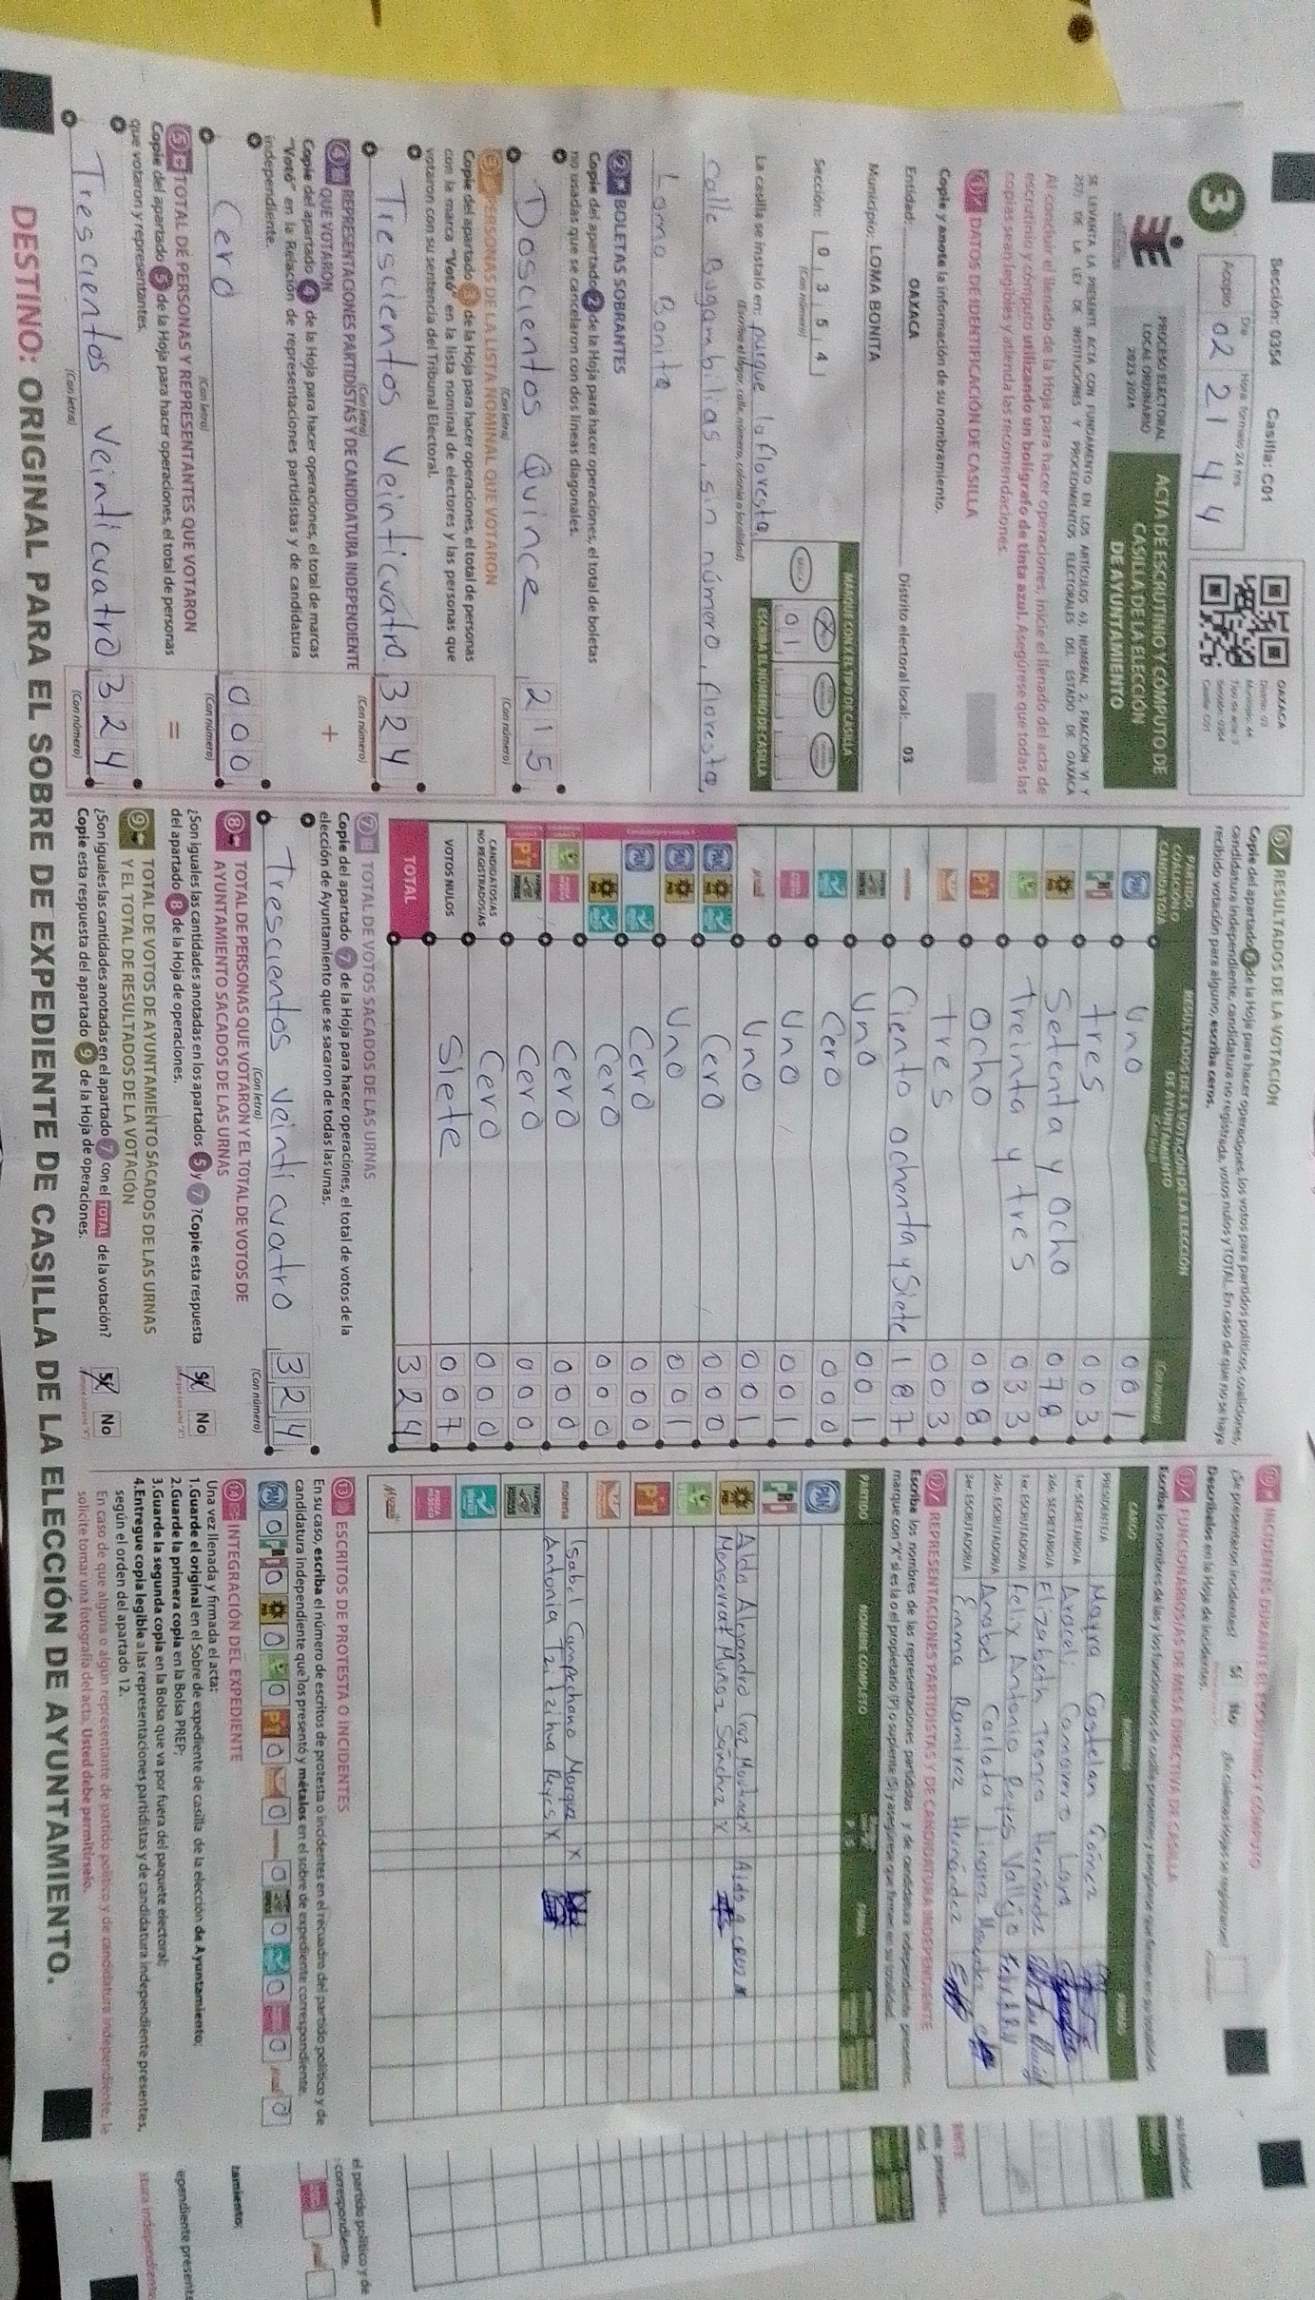 Sección: 0354 Casilla: C01
Día Hora formato 24 hrs
3 Acopio 02 21 44
OAXACA
PROCESO ELECTORAL
LOCAL ORDINARIO
2023-2024
ACTA DE ESCRUTINIO Y CÓMPUTO DE
CASILLA DE LA ELECCIÓN
DE AYUNTAMIENTO
SE LEVANTA LA PRESENTE ACTA CON FUNDAMENTO EN LOS ARTÍCULOS 63, NUMERAL 2, FRACCIÓN VI Y
217 DE LA LEY DE INSTITUCIONES Y PROCEDIMIENTOS ELECTORALES DEL ESTADO DE OAXACA
Al concluir el llenado de la Hoja para hacer operaciones, inicie el llenado del acta de
escrutinio y cómputo utilizando un bolígrafo de tinta azul. Asegúrese que todas las
copias sean legibles y atienda las recomendaciones.
1 DATOS DE IDENTIFICACIÓN DE CASILLA
Copie y anote la información de su nombramiento.
Entidad: OAXACA Distrito electoral local: 03
Municipio: LOMA BONITA
Sección: 0 3 5 4
(Con número)
MARQUE CON X EL TIPO DE CASILLA
ESCRIBA EL NÚMERO DE CASILLA
0 1
La casilla se instaló en: parque la floresta
(Escriba el lugar, calle, número, colonia o localidad)
calle Bugambilias, sin número, floresta,
Loma Bonita
2 BOLETAS SOBRANTES
Copie del apartado 2 de la Hoja para hacer operaciones, el total de boletas
no usadas que se cancelaron con dos líneas diagonales.
Doscientos Quince 215
(Con letra) (Con número)
3 PERSONAS DE LA LISTA NOMINAL QUE VOTARON
Copie del apartado 3 de la Hoja para hacer operaciones, el total de personas
con la marca "Votó" en la lista nominal de electores y las personas que
votaron con su sentencia del Tribunal Electoral.
Trescientos Veinticuatro 324
(Con letra) (Con número)
4 REPRESENTACIONES PARTIDISTAS Y DE CANDIDATURA INDEPENDIENTE
QUE VOTARON +
Copie del apartado 4 de la Hoja para hacer operaciones, el total de marcas
"Votó" en la Relación de representaciones partidistas y de candidatura
independiente.
Cero 000
(Con letra) (Con número)
5 TOTAL DE PERSONAS Y REPRESENTANTES QUE VOTARON =
Copie del apartado 5 de la Hoja para hacer operaciones, el total de personas
que votaron y representantes.
Trescientos veinticuatro 324
(Con letra) (Con número)
6 RESULTADOS DE LA VOTACIÓN
Copie del apartado 6 de la Hoja para hacer operaciones, los votos para partidos políticos, coaliciones,
candidatura independiente, candidatura no registrada, votos nulos y TOTAL. En caso de que no se haya
recibido votación para alguno, escriba ceros.
PARTIDO,
COALICIÓN O
CANDIDATO/A
RESULTADOS DE LA VOTACIÓN DE LA ELECCIÓN
DE AYUNTAMIENTO
(Con número)
PAN Uno 001
PRI tres 003
PRD Setenta y ocho 078
Treinta y tres 033
PT Ocho 008
tres 003
Ciento ochenta y siete 187
Uno 001
Cero 000
Uno 001
Uno 001
Cero 000
Uno 001
Cero 000
Cero 000
Cero 000
Cero 000
CANDIDATOS/AS
NO REGISTRADOS/AS Cero 000
VOTOS NULOS Siete 007
TOTAL 324
7 TOTAL DE VOTOS SACADOS DE LAS URNAS
Copie del apartado 7 de la Hoja para hacer operaciones, el total de votos de la
elección de Ayuntamiento que se sacaron de todas las urnas.
Trescientos veinticuatro 324
(Con letra) (Con número)
8 TOTAL DE PERSONAS QUE VOTARON Y EL TOTAL DE VOTOS DE
AYUNTAMIENTO SACADOS DE LAS URNAS
¿Son iguales las cantidades anotadas en los apartados 5 y 7? Copie esta respuesta
del apartado 8 de la Hoja de operaciones. Sí No
9 TOTAL DE VOTOS DE AYUNTAMIENTO SACADOS DE LAS URNAS
Y EL TOTAL DE RESULTADOS DE LA VOTACIÓN
¿Son iguales las cantidades anotadas en el apartado 7 con el TOTAL de la votación?
Copie esta respuesta del apartado 9 de la Hoja de operaciones. Sí No
10 INCIDENTES DURANTE EL ESCRUTINIO Y CÓMPUTO
¿Se presentaron incidentes? Sí No
Descríbalos en la Hoja de incidentes.
11 FUNCIONARIOS/AS DE MESA DIRECTIVA DE CASILLA
Escriba los nombres de las y los funcionarios de casilla presentes y asegúrese que firmen en su totalidad.
CARGO NOMBRES FIRMAS
PRESIDENTE/A Mayra Castelan Gómez
1er. SECRETARIO/A Araceli Camarero Lara
2do. SECRETARIO/A Elizabeth Tronco Hernández
1er. ESCRUTADOR/A Felix Antonio Reyes Vallejo
2do. ESCRUTADOR/A Anabel Carlota Linarez Mendez
3er. ESCRUTADOR/A Emma Ramirez Hernández
REPRESENTACIONES PARTIDISTAS Y DE CANDIDATURA INDEPENDIENTE
Escriba los nombres de las representaciones partidistas y de candidatura independiente presentes,
marque con "X" si es la o el propietario (P) o suplente (S) y asegúrese que firmen en su totalidad.
PARTIDO NOMBRE COMPLETO P S FIRMA
PAN
PRI
PRD Aldo Alejandro Cruz Martinez X
Monserrat Muñoz Sánchez X
PT
morena Isabel Campechano Marquez X
Antonia Tzitzihua Reyes X
13 ESCRITOS DE PROTESTA O INCIDENTES
En su caso, escriba el número de escritos de protesta o incidentes en el recuadro del partido político y de
candidatura independiente que los presentó y métalos en el sobre de expediente correspondiente.
PAN 0 PRI 0 PRD 0 0 PT 0 0 0 0 0 0 0
INTEGRACIÓN DEL EXPEDIENTE
Una vez llenada y firmada el acta:
1.Guarde el original en el Sobre de expediente de casilla de la elección de Ayuntamiento;
2.Guarde la primera copia en la Bolsa PREP;
3.Guarde la segunda copia en la Bolsa que va por fuera del paquete electoral;
4.Entregue copia legible a las representaciones partidistas y de candidatura independiente presentes,
según el orden del apartado 12.
En caso de que alguna o algún representante de partido político y de candidatura independiente, la
solicite tomar una fotografía del acta. Usted debe permitírselo.
DESTINO: ORIGINAL PARA EL SOBRE DE EXPEDIENTE DE CASILLA DE LA ELECCIÓN DE AYUNTAMIENTO.
el partido político y de
correspondiente.
tamiento;
ependiente present